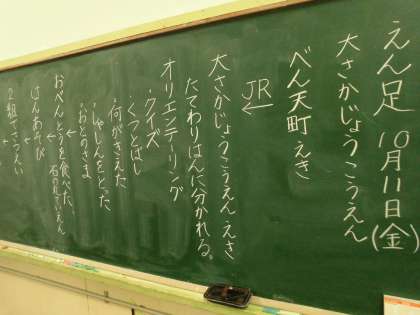 えん足 10月11日(金)
大さかじょうこうえん
べん天町えき
JR
←
大さかじょうこうえんえき
たてわりはんに分かれる。
オリエンテーリング
・クイズ
・くつとばし
・何がきえた
・しゃしんをとった
・おとのさま
←
おべんとうを食べた。
←
はんあそび
←
2組でさつえい